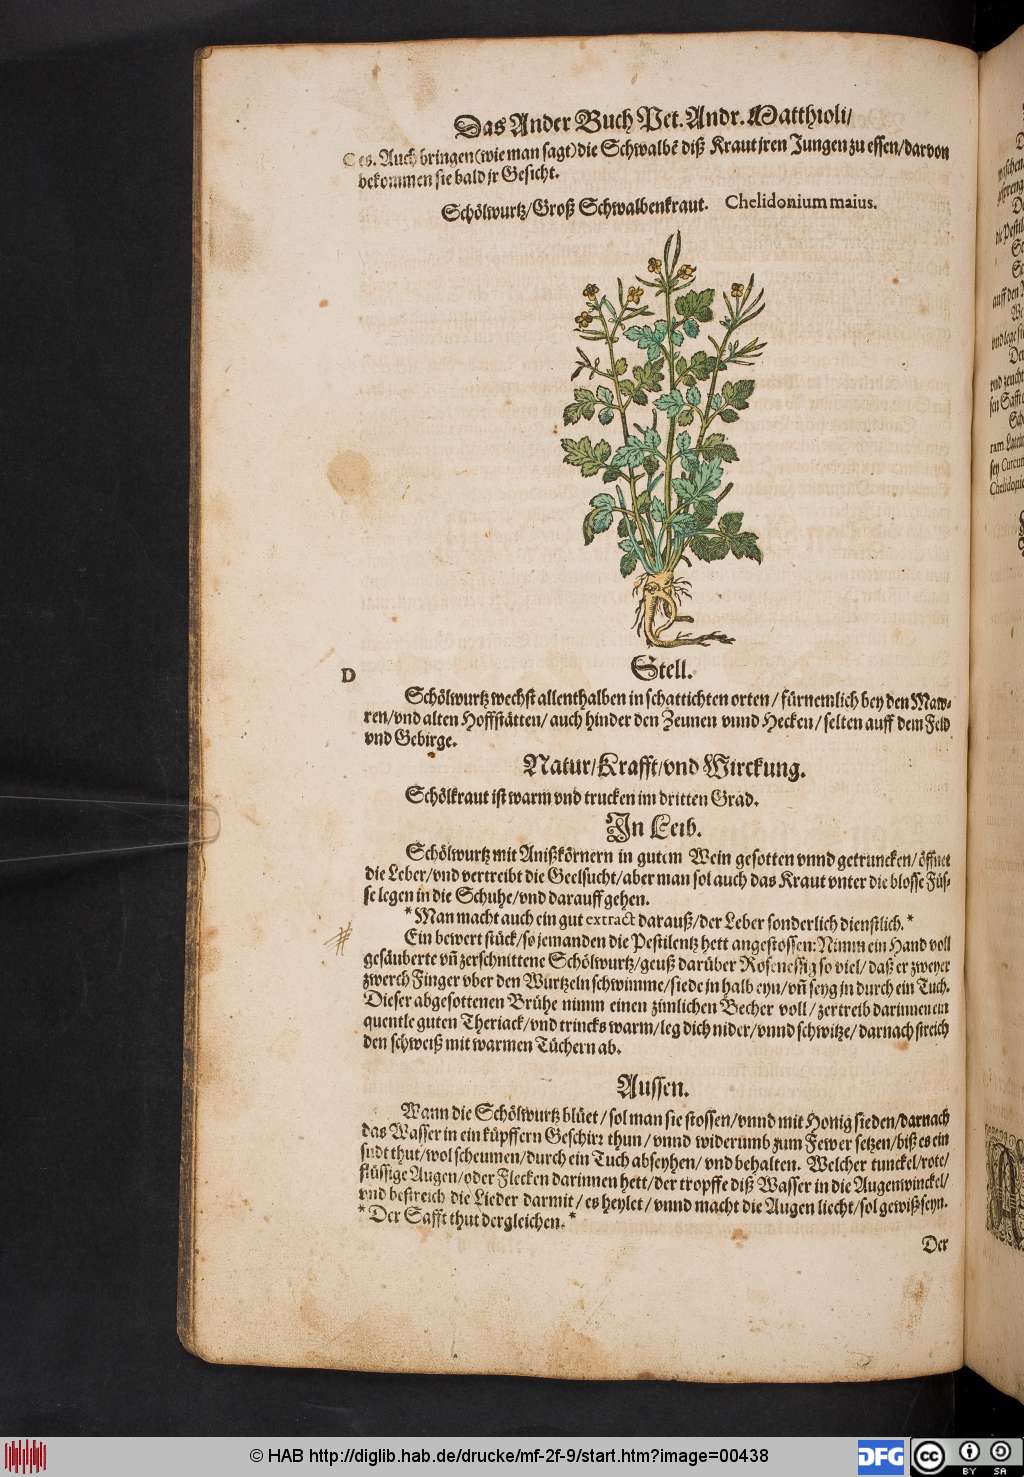 Das Ander Buch Pet. Andr. Matthioli/
C es. Auch bringen (wie man sagt) die Schwalbē diß Kraut jren Jungen zu essen/ darvon
bekommen sie bald jr Gesicht.
Schölwurtz/ Groß Schwalbenkraut. Chelidonium maius.
Stell.
D
Schölwurtz wechst allenthalben in schattichten orten/ fürnemlich bey den Maw-
ren/ vnd alten Hoffstätten/ auch hinder den Zeunen vnnd Hecken/ selten auff dem Feld
vnd Gebirge.
Natur/ Krafft/ vnd Wirckung.
Schölkraut ist warm vnd trucken im dritten Grad.
In Leib.
Schölwurtz mit Anißkörnern in gutem Wein gesotten vnnd getruncken/ öffnet
die Leber/ vnd vertreibt die Geelsucht/ aber man sol auch das Kraut vnter die blosse Füs-
se legen in die Schuhe/ vnd darauff gehen.
* Man macht auch ein gut extract darauß/ der Leber sonderlich dienstlich. *
Ein bewert stück/ so jemanden die Pestilentz hett angestossen: Nimm ein Hand voll
gesäuberte vñ zerschnittene Schölwurtz/ geuß darüber Rosenessig so viel/ daß er zweyer
zwerch Finger vber den Wurtzeln schwimme/ siede jn halb eyn/ vñ seyg jn durch ein Tuch.
Dieser abgesottenen Brühe nimm einen zimlichen Becher voll/ zertreib darinnen ein
quentle guten Theriack/ vnd trincks warm/ leg dich nider/ vnnd schwitze/ darnach streich
den schweiß mit warmen Tüchern ab.
Aussen.
Wann die Schölwurtz blüet/ sol man sie stossen/ vnnd mit Honig sieden/ darnach
das Wasser in ein küpffern Geschirr thun/ vnnd widerumb zum Fewer setzen/ biß es ein
sudt thut/ wol scheumen/ durch ein Tuch abseyhen/ vnd behalten. Welcher tunckel/ rote/
flüssige Augen/ oder Flecken darinnen hett/ der tropffe diß Wasser in die Augenwinckel/
vnd bestreich die Lieder darmit/ es heylet/ vnnd macht die Augen liecht/ sol gewiß seyn.
* Der Safft thut dergleichen. *
Der
© HAB http://diglib.hab.de/drucke/mf-2f-9/start.htm?image=00438
DFG
cc BY SA